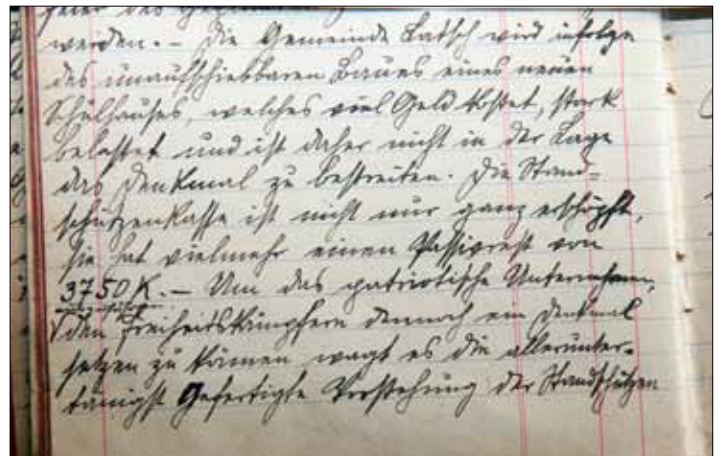 feier des
werden. – Die Gemeinde Latsch wird infolge
des unaufschiebbaren Baues eines neuen
Schulhauses, welches viel Geld kostet, stark
belastet und ist daher nicht in der Lage
das Denkmal zu bestreiten. Die Stand=
schützenkasse ist nicht nur ganz erschöpft,
sie hat vielmehr einen Passivrest von
3750 K. – Um das patriotische Unternehmen,
den Freiheitskämpfern dennoch ein Denkmal
setzen zu können wagt es die allerunter-
tänigst Gefertigte Vorstehung der Standschützen